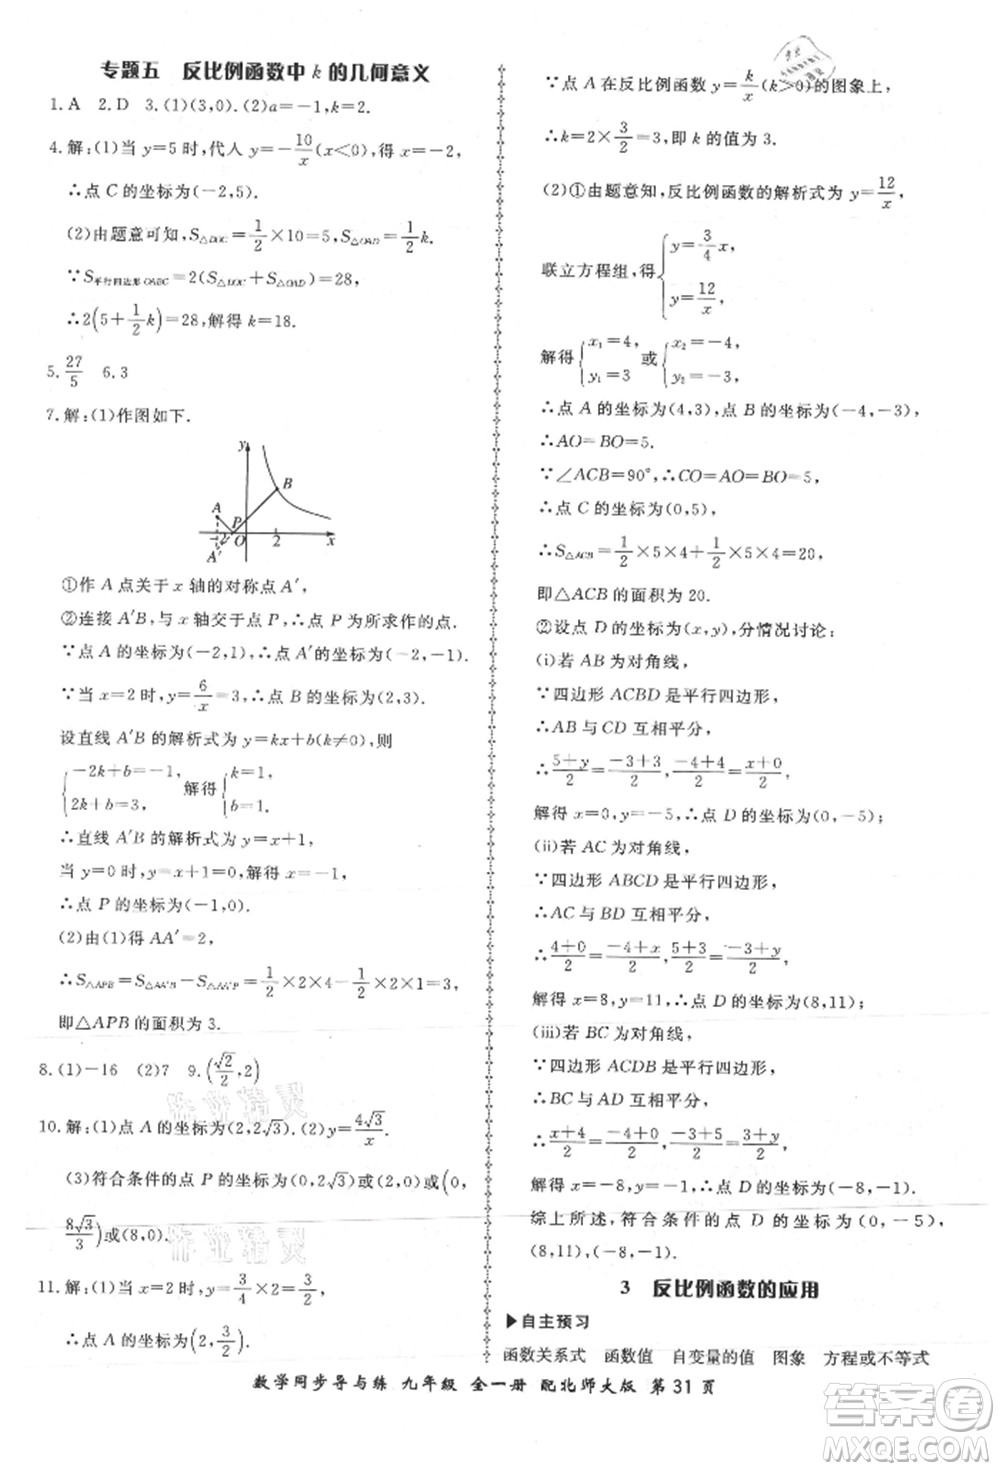 专题五　反比例函数中 k 的几何意义
1.A　2.D　3.(1)(3,0).(2)a=-1,k=2.
4.解:(1)当 y=5 时,代人 y=-10/x(x<0),得 x=-2,
∴点 C 的坐标为(-2,5).
(2)由题意可知,S△DOC=1/2×10=5,S△OAD=1/2k.
∵S平行四边形OABC=2(S△DOC+S△OAD)=28,
∴2(5+1/2k)=28,解得 k=18.
5.27/5　6.3
7.解:(1)作图如下.
y
B
A
P
-2
O
2
x
A′
①作 A 点关于 x 轴的对称点 A′,
②连接 A′B,与 x 轴交于点 P,∴点 P 为所求作的点.
∵点 A 的坐标为(-2,1),∴点 A′的坐标为(-2,-1).
∵当 x=2 时,y=6/x=3,∴点 B 的坐标为(2,3).
设直线 A′B 的解析式为 y=kx+b(k≠0),则
{-2k+b=-1, 2k+b=3, 解得{k=1, b=1.
∴直线 A′B 的解析式为 y=x+1,
当 y=0 时,y=x+1=0,解得 x=-1.
∴点 P 的坐标为(-1,0).
(2)由(1)得 AA′=2,
∴S△APB=S△AA′B-S△AA′P=1/2×2×4-1/2×2×1=3,
即△APB 的面积为 3.
8.(1)-16　(2)7　9.(√2/2,2)
10.解:(1)点 A 的坐标为(2,2√3).(2)y=4√3/x.
(3)符合条件的点 P 的坐标为(0,2√3)或(4,0)或(0,
8√3/3)或(8,0).
11.解:(1)当 x=2 时,y=3/4×2=3/2,
∴点 A 的坐标为(2,3/2).
∵点 A 在反比例函数 y=k/x(k>0)的图象上,
∴k=2×3/2=3,即 k 的值为 3.
(2)①由题意知,反比例函数的解析式为 y=12/x,
联立方程组,得{y=3/4x, y=12/x,
解得{x₁=4, y₁=3 或{x₂=-4, y₂=-3,
∴点 A 的坐标为(4,3),点 B 的坐标为(-4,-3),
∴AO=BO=5.
∵∠ACB=90°,∴CO=AO=BO=5,
∴点 C 的坐标为(0,5),
∴S△ACB=1/2×5×4+1/2×5×4=20,
即△ACB 的面积为 20.
②设点 D 的坐标为(x,y),分情况讨论:
(i)若 AB 为对角线,
∵四边形 ACBD 是平行四边形,
∴AB 与 CD 互相平分,
∴5+y/2=-3+3/2,-4+4/2=x+0/2,
解得 x=0,y=-5,∴点 D 的坐标为(0,-5);
(ii)若 AC 为对角线,
∵四边形 ABCD 是平行四边形,
∴AC 与 BD 互相平分,
∴4+0/2=-4+x/2,5+3/2=-3+y/2,
解得 x=8,y=11,∴点 D 的坐标为(8,11);
(iii)若 BC 为对角线,
∵四边形 ACDB 是平行四边形,
∴AD 与 BC 互相平分,
∴x+4/2=-4+0/2,-3+5/2=y+3/2,
解得 x=-8,y=-1,∴点 D 的坐标为(-8,-1).
综上所述,符合条件的点 D 的坐标为(0,-5),
(8,11),(-8,-1).
3　反比例函数的应用
▶自主预习
函数关系式　函数值　自变量的值　图象　方程或不等式
数学同步导与练 九年级 全一册 配北师大版 第 31 页
作业精灵
作业精灵
答案圈
MXQE.COM